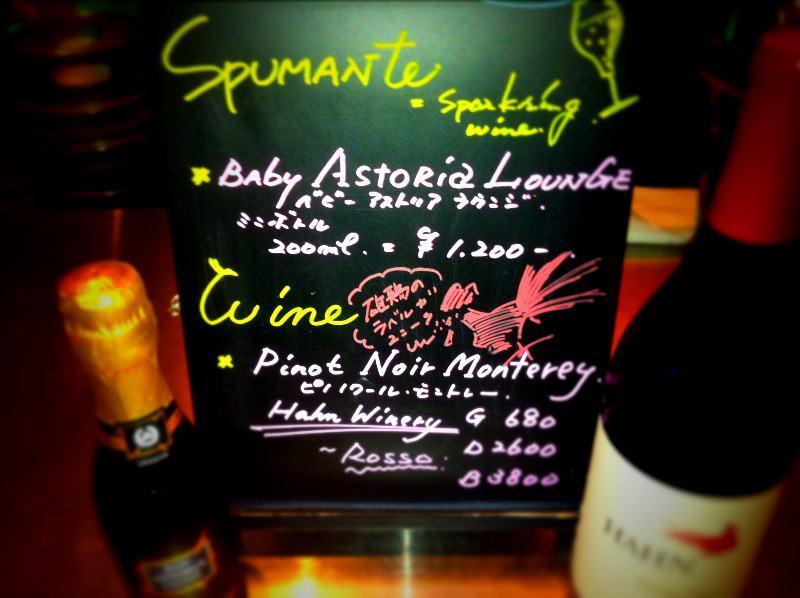 Spumante
= Sparkling
wine.
* Baby Astoria Lounge
ベビー アストリア ラウンジ.
ミニボトル
200ml. = ¥1.200-
Wine
雄鶏の
ラベルが
ユニーク
* Pinot Noir Monterey.
ピノノワール・モントレー.
Hahn Winery G 680
~Rosso. D 2600
B 3800
HAHN